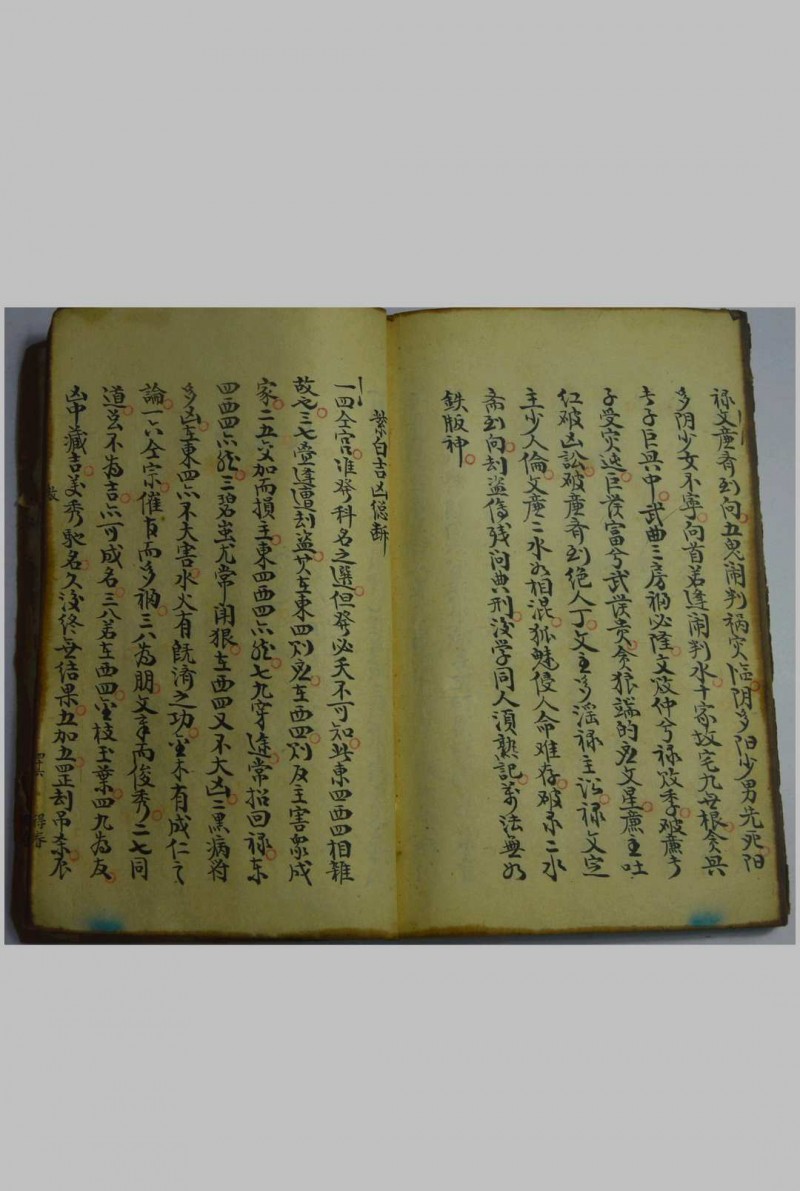 禄文廉脊到向五鬼鬧判禍災臨阴多阳少男先死阳
多阴少女不寧向首若逢鬧判水千家故宅九無根貪與
長子巨與中武曲三房禍必隆文敗仲兮禄敗季破廉少
子受灾迍巨發富兮武發贵貪狼端的鬼文星廉主吐
红破凶訟破廉脊到绝人丁文主多淫禄主訟禄文定
主少人倫文廉二水如相混狐魅侵人命难存破禄二水
斋到向刦盗傷残问典刑後学同人須熟記萬法無如
鉄版神
紫白吉凶總断
一四仝宫准發科名之選但發必夭不可知此東四西四相雜
故也三七疊逢遭刦盗其在東四则鬼在西四则反主害衆成
家二五交加而損主東四西四亦然七九穿逢常招回禄东
四西四亦然三碧蚩尤常闹狠在西四又不大凶二黑病符
多凶在東四亦不大害水火有既濟之功金木有成仁之
論一六仝宗催官而多禍三八為朋文章而俊秀二七同
道岂不為吉亦可成名三八若在西四金枝玉葉四九為友
凶中藏吉美秀馳名久後终無结果五加五四正刦吊奎衣